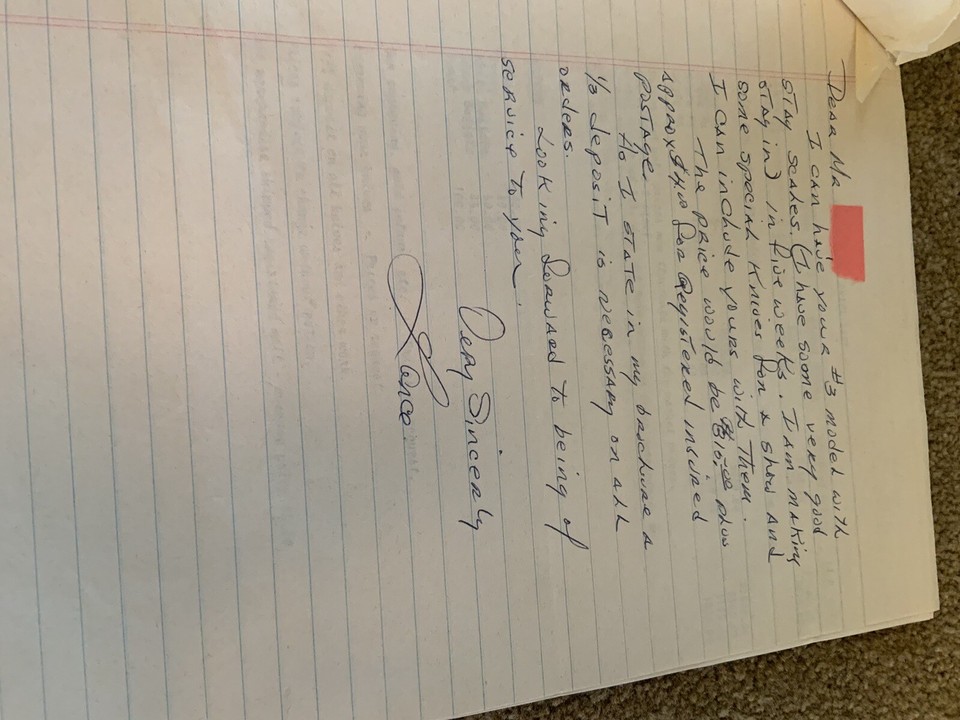 Dear Mr
I can have your #3 model with
stag scales. (I have some very good
stag in) in five weeks. I am making
some special knives for a show and
I can include yours with them.
The price would be plus
approx for Registered insured
postage.
As I state in my brochure a
1/3 deposit is necessary on all
orders.
Looking forward to being of
service to you.
Very Sincerly
Lance